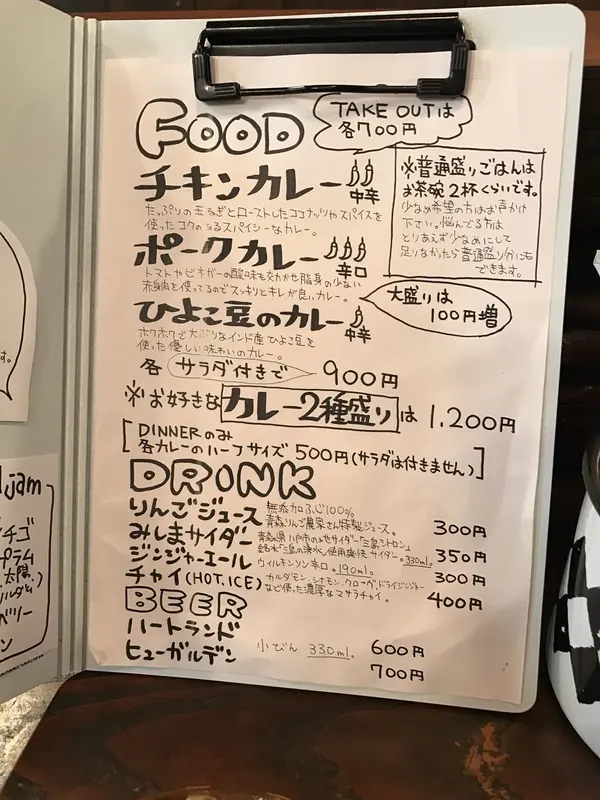 FOOD
TAKE OUTは
各700円
チキンカレー
中辛
たっぷりの玉ねぎとローストしたココナッツやスパイスを
使ったコクのあるスパイシーなカレー。
※普通盛りごはんは
お茶碗2杯くらいです。
少なめ希望の方はお声かけ
下さい。悩んでる方は
とりあえず少なめにして
足りなかったら普通盛り分にも
できます。
ポークカレー
辛口
トマトやビネガーの酸味も交わせ脂身の少ない
赤身肉を使ってるのでスッキリとキレが良いカレー。
大盛りは
100円増
ひよこ豆のカレー
中辛
ホクホクで大ぶりなインド産ひよこ豆を
使った優しい味わいのカレー。
各サラダ付きで 900円
※お好きなカレー2種盛りは 1,200円
[DINNERのみ
各カレーのハーフサイズ 500円(サラダは付きません)]
DRINK
りんごジュース 無添加ふじ100%
青森りんご農家さん特製ジュース。 300円
みしまサイダー 青森県八戸市の地サイダー「三島シトロン」
銘水「三島の湧水」使用微炭サイダー。330ml. 350円
ジンジャーエール ウィルキンソン辛口。190ml. 300円
チャイ(HOT.ICE) カルダモン、シナモン、クローヴ、ドライジンジャー
など使った濃厚なマサラチャイ。 400円
BEER
ハートランド 小びん 330ml. 600円
ヒューガルデン 700円
す。
jam
チゴ
プラム
太陽
ベリー
ン